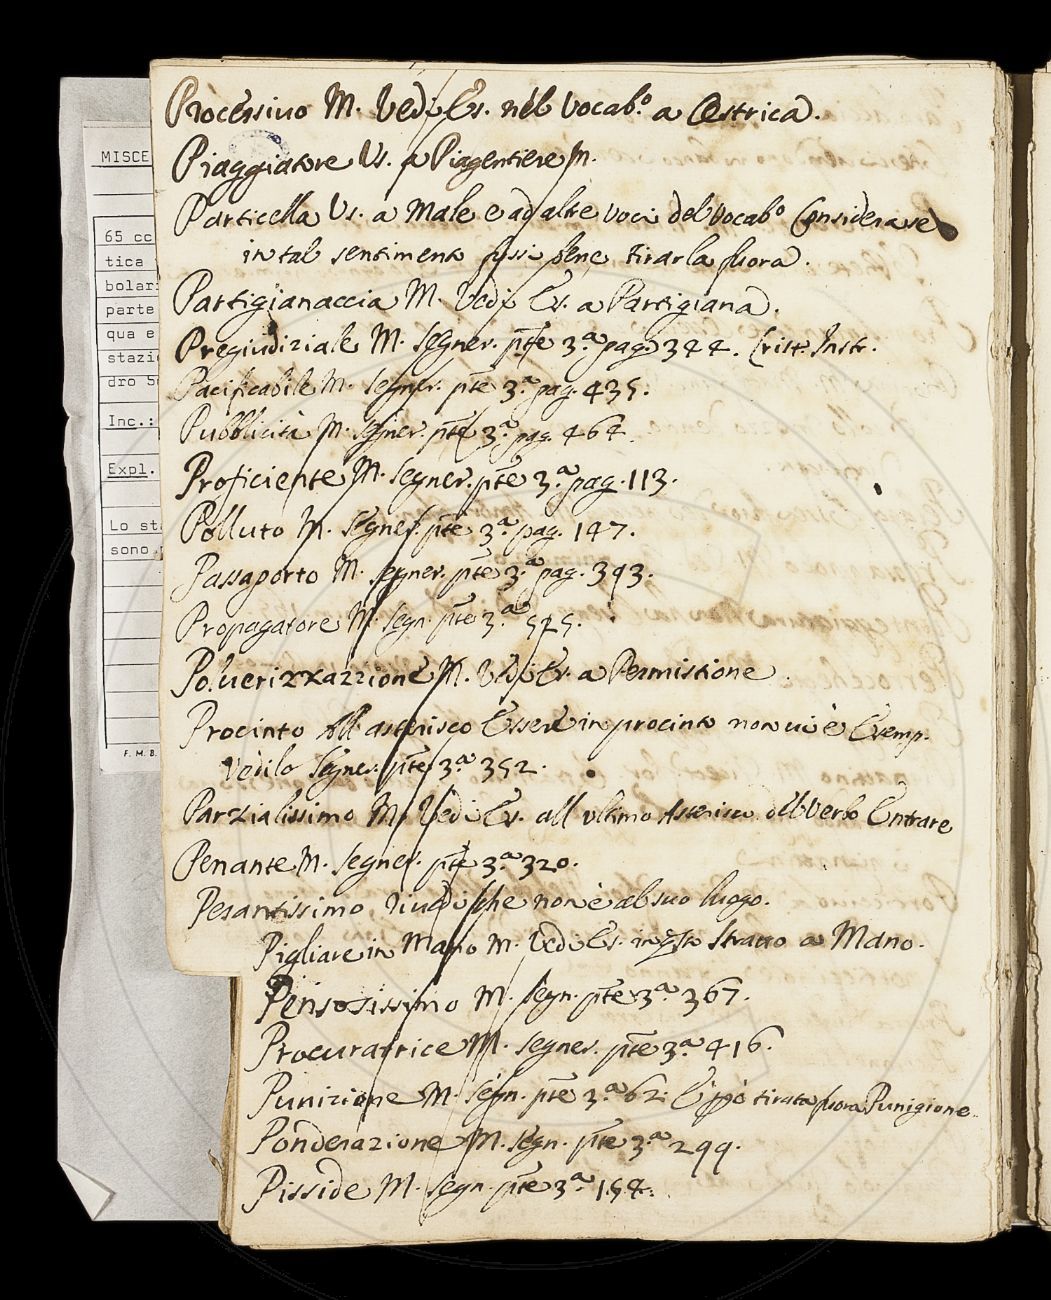 MISCE
65 cc
tica
bolari
parte
qua e
stazio
dro Se
Inc.:
Expl.
Lo sta
sono
F. M. B.
Processiuo M. Vedi Es. nel Vocab.º a Cestrica.
Piaggiatore Vs. a Piagentiere M.
Particella Vs. a Male e ad altre voci del Vocab.º Considerare
in tal sentimento fussi bene tirarla fuora.
Partigianaccia M. Vedi Es. a Partigiana.
Pregiudiziale M. Segner. pte 3.ª pag. 344. Crist. Instr.
Pacificabile M. Segner. pte 3.ª pag. 435.
Pubblicità M. Segner. pte 3.ª pag. 464.
Proficiente M. Segner. pte 3.ª pag. 113.
Polluto M. Segner. pte 3.ª pag. 147.
Passaporto M. Segner. pte 3.ª pag. 393.
Propagatore M. Segn. pte 3.ª 525.
Poluerizzazzione M. Vedi Es. a Permistione.
Procinto All'asterisco Essere in procinto non ui è Esemp.
Vedilo Segner. pte 3.ª 352.
Parzialissimo M. Vedi Es. all ultimo Asterisco del Verbo Entrare
Penante M. Segner. pte 3.ª 320.
Pesantissimo, Riuedi che non è al suo luogo.
Pigliare in Mano M. Vedi Es. in qsto Stratto a Mano.
Pensosissimo M. Segn. pte 3.ª 367.
Procuratrice M. Segner. pte 3.ª 416.
Punizione M. Segn. pte 3.ª 62. E ppò tirata fuora Punigione
Ponderazione M. Segn. pte 3.ª 299.
Pisside M. Segn. pte 3.ª 154.